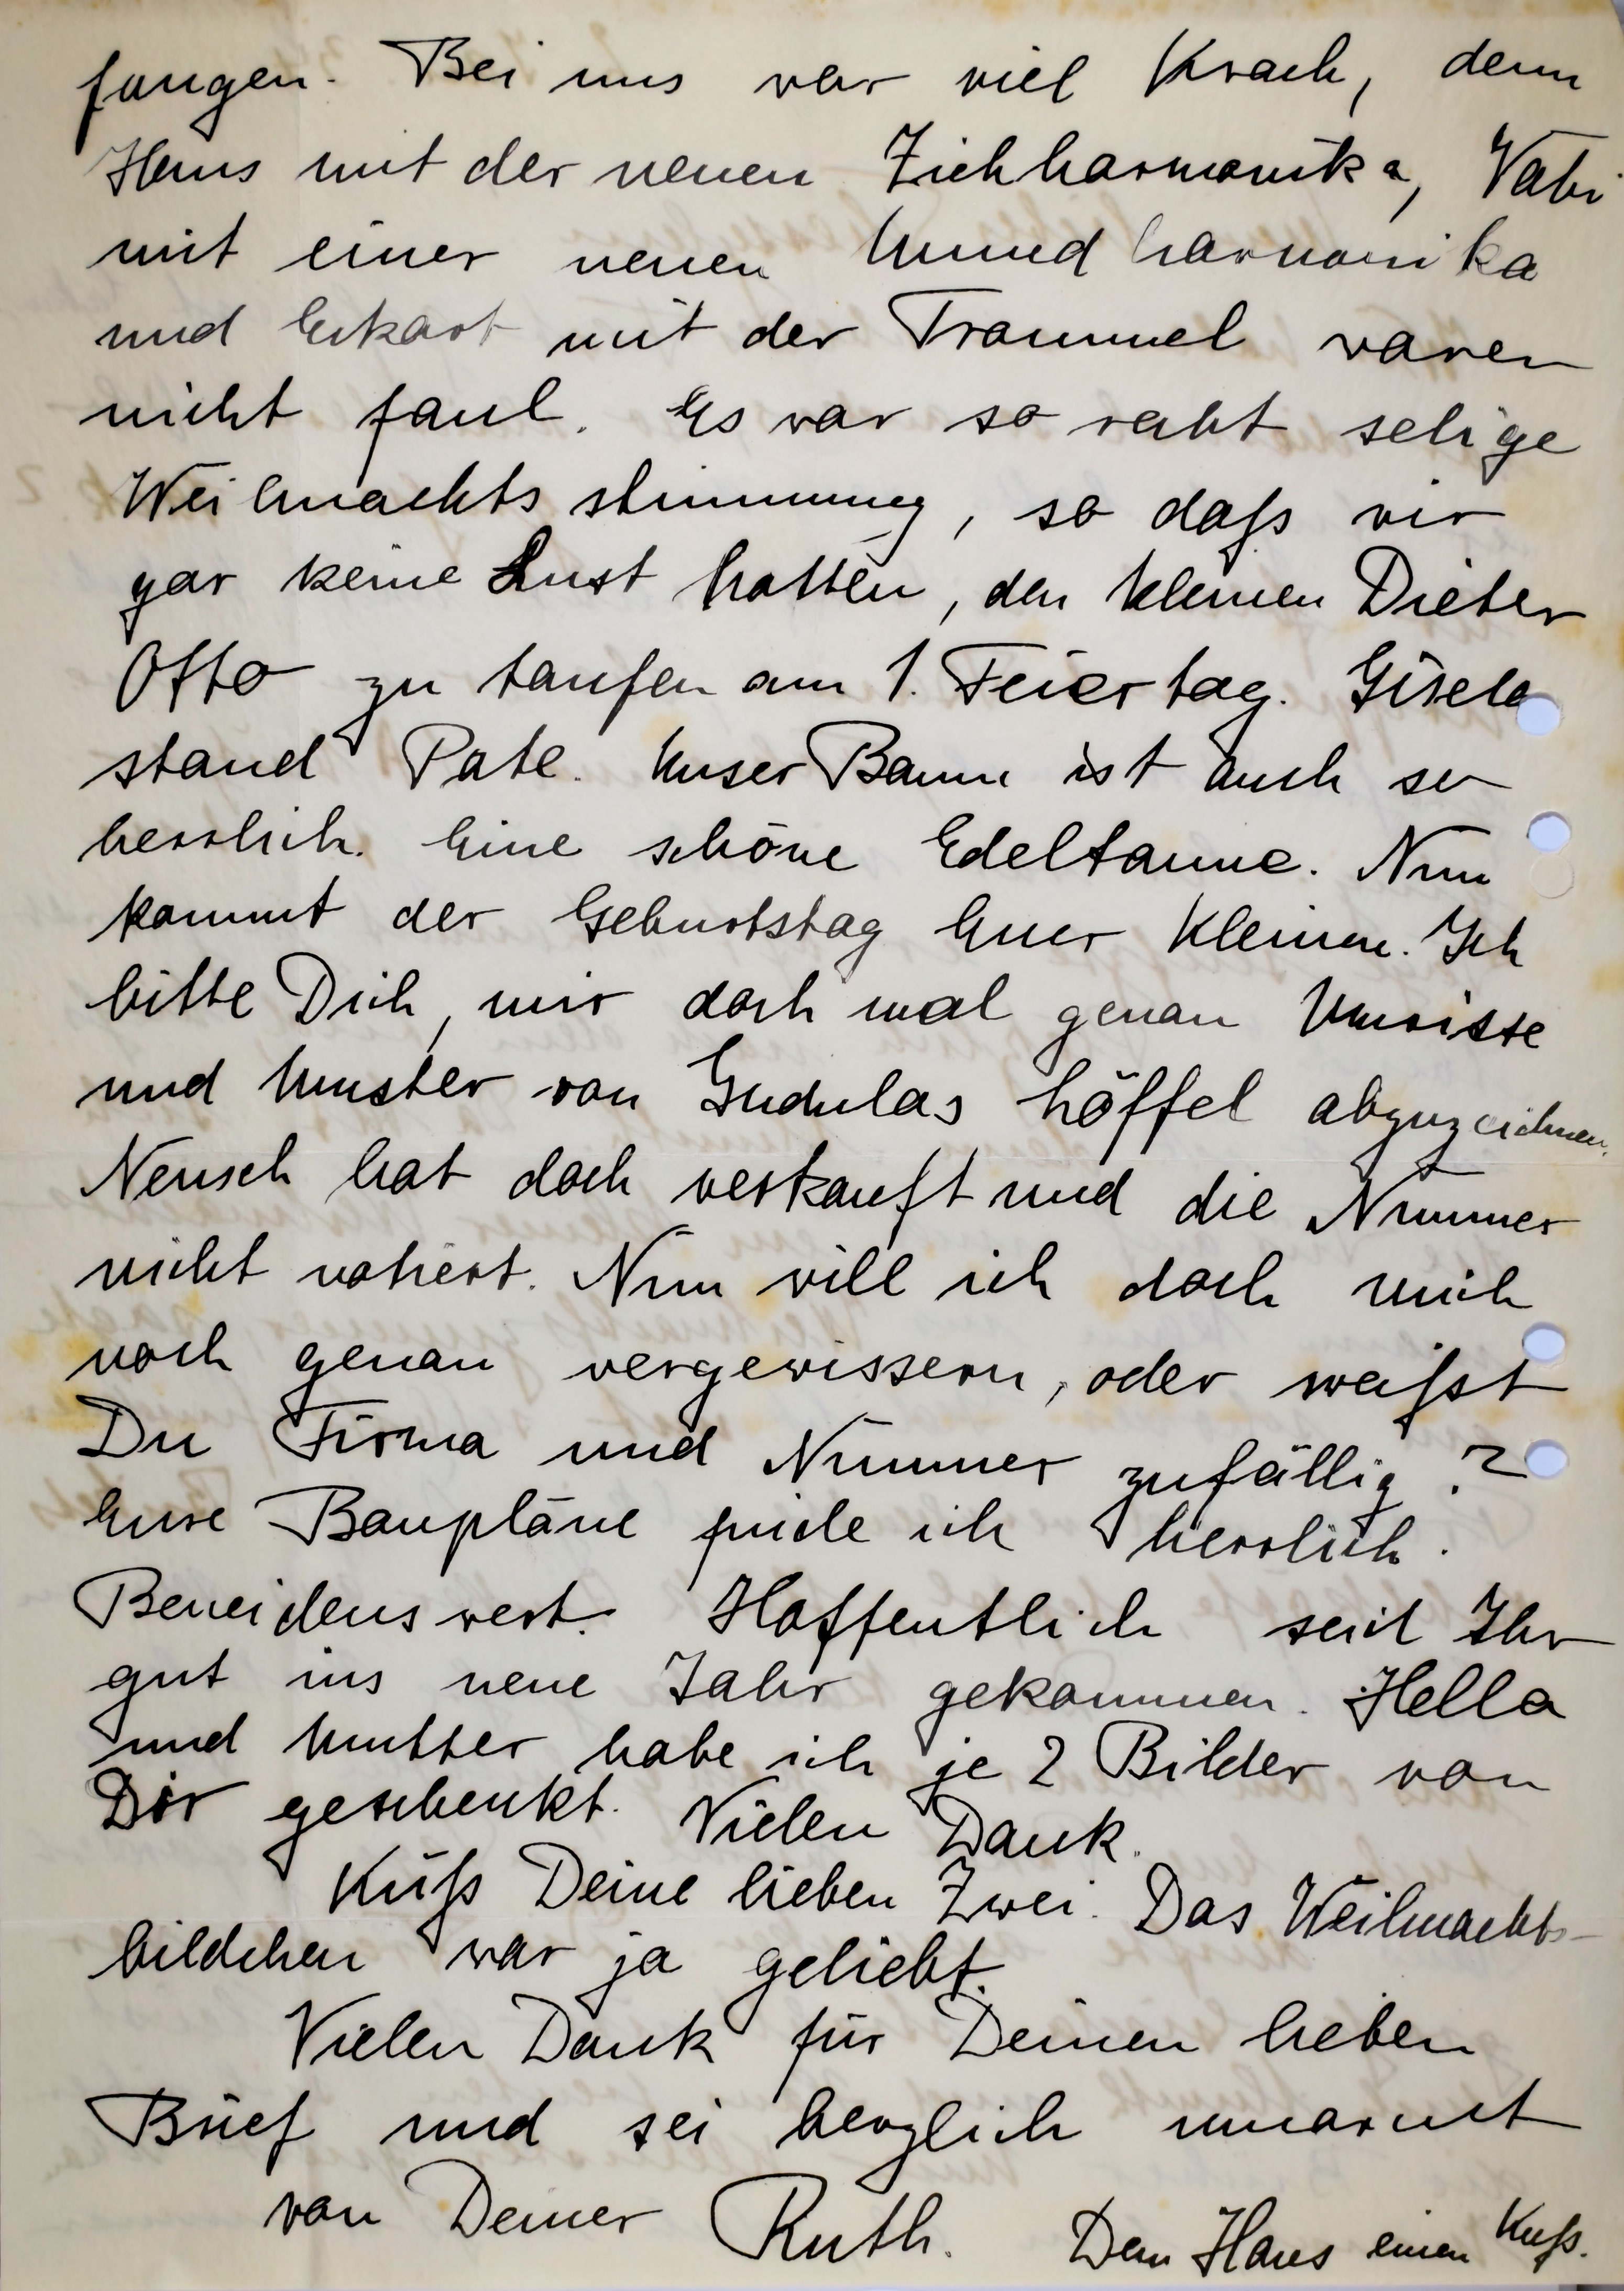 fangen. Bei uns war viel Krach, denn
Hans mit der neuen Ziehharmonika, Vati
mit einer neuen Mundharmonika
und Eckart mit der Trommel waren
nicht faul. Es war so recht selige
Weihnachtsstimmung, so daß wir
gar keine Lust hatten, den kleinen Dieter
Otto zu taufen am 1. Feiertag. Gisela
stand Pate. Unser Baum ist auch so
herrlich. Eine schöne Edeltanne. Nun
kommt der Geburtstag Euer Kleinen. Ich
bitte Dich, mir doch mal genau Umrisse
und Muster von Gudulas Löffel abzuzeichnen.
Neusch hat doch verkauft und die Nummer
nicht notiert. Nun will ich doch mich
noch genau vergewissern, oder weißt
Du Firma und Nummer zufällig?
Eure Baupläne finde ich herrlich.
Beneidenswert. Hoffentlich seid Ihr
gut ins neue Jahr gekommen. Hella
und Mutter habe ich je 2 Bilder von
Dir geschenkt. Vielen Dank.
Küß Deine lieben Zwei. Das Weihnachts-
bildchen war ja geliebt.
Vielen Dank für Deinen lieben
Brief und sei herzlich umarmt
von Deiner Ruth. Dem Hans einen Kuß.